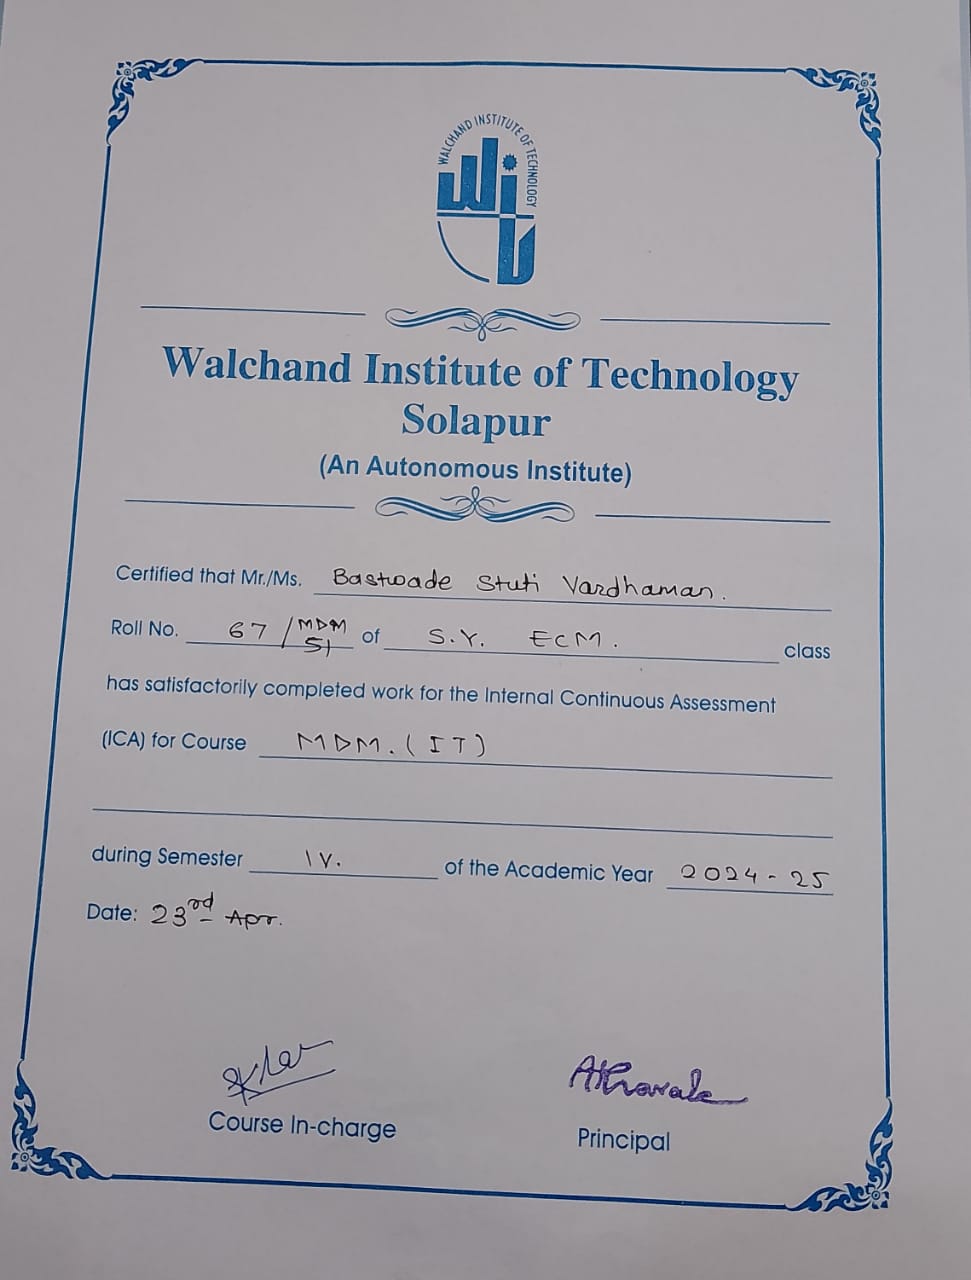 WALCHAND INSTITUTE OF TECHNOLOGY
wit
Walchand Institute of Technology
Solapur
(An Autonomous Institute)
Certified that Mr./Ms. Bastwade Stuti Vardhaman.
Roll No. 67 / MDM 51 of S.Y. ECM. class
has satisfactorily completed work for the Internal Continuous Assessment
(ICA) for Course MDM. (IT)
during Semester IV. of the Academic Year 2024-25
Date: 23rd Apr.
Athavale
Course In-charge
Principal